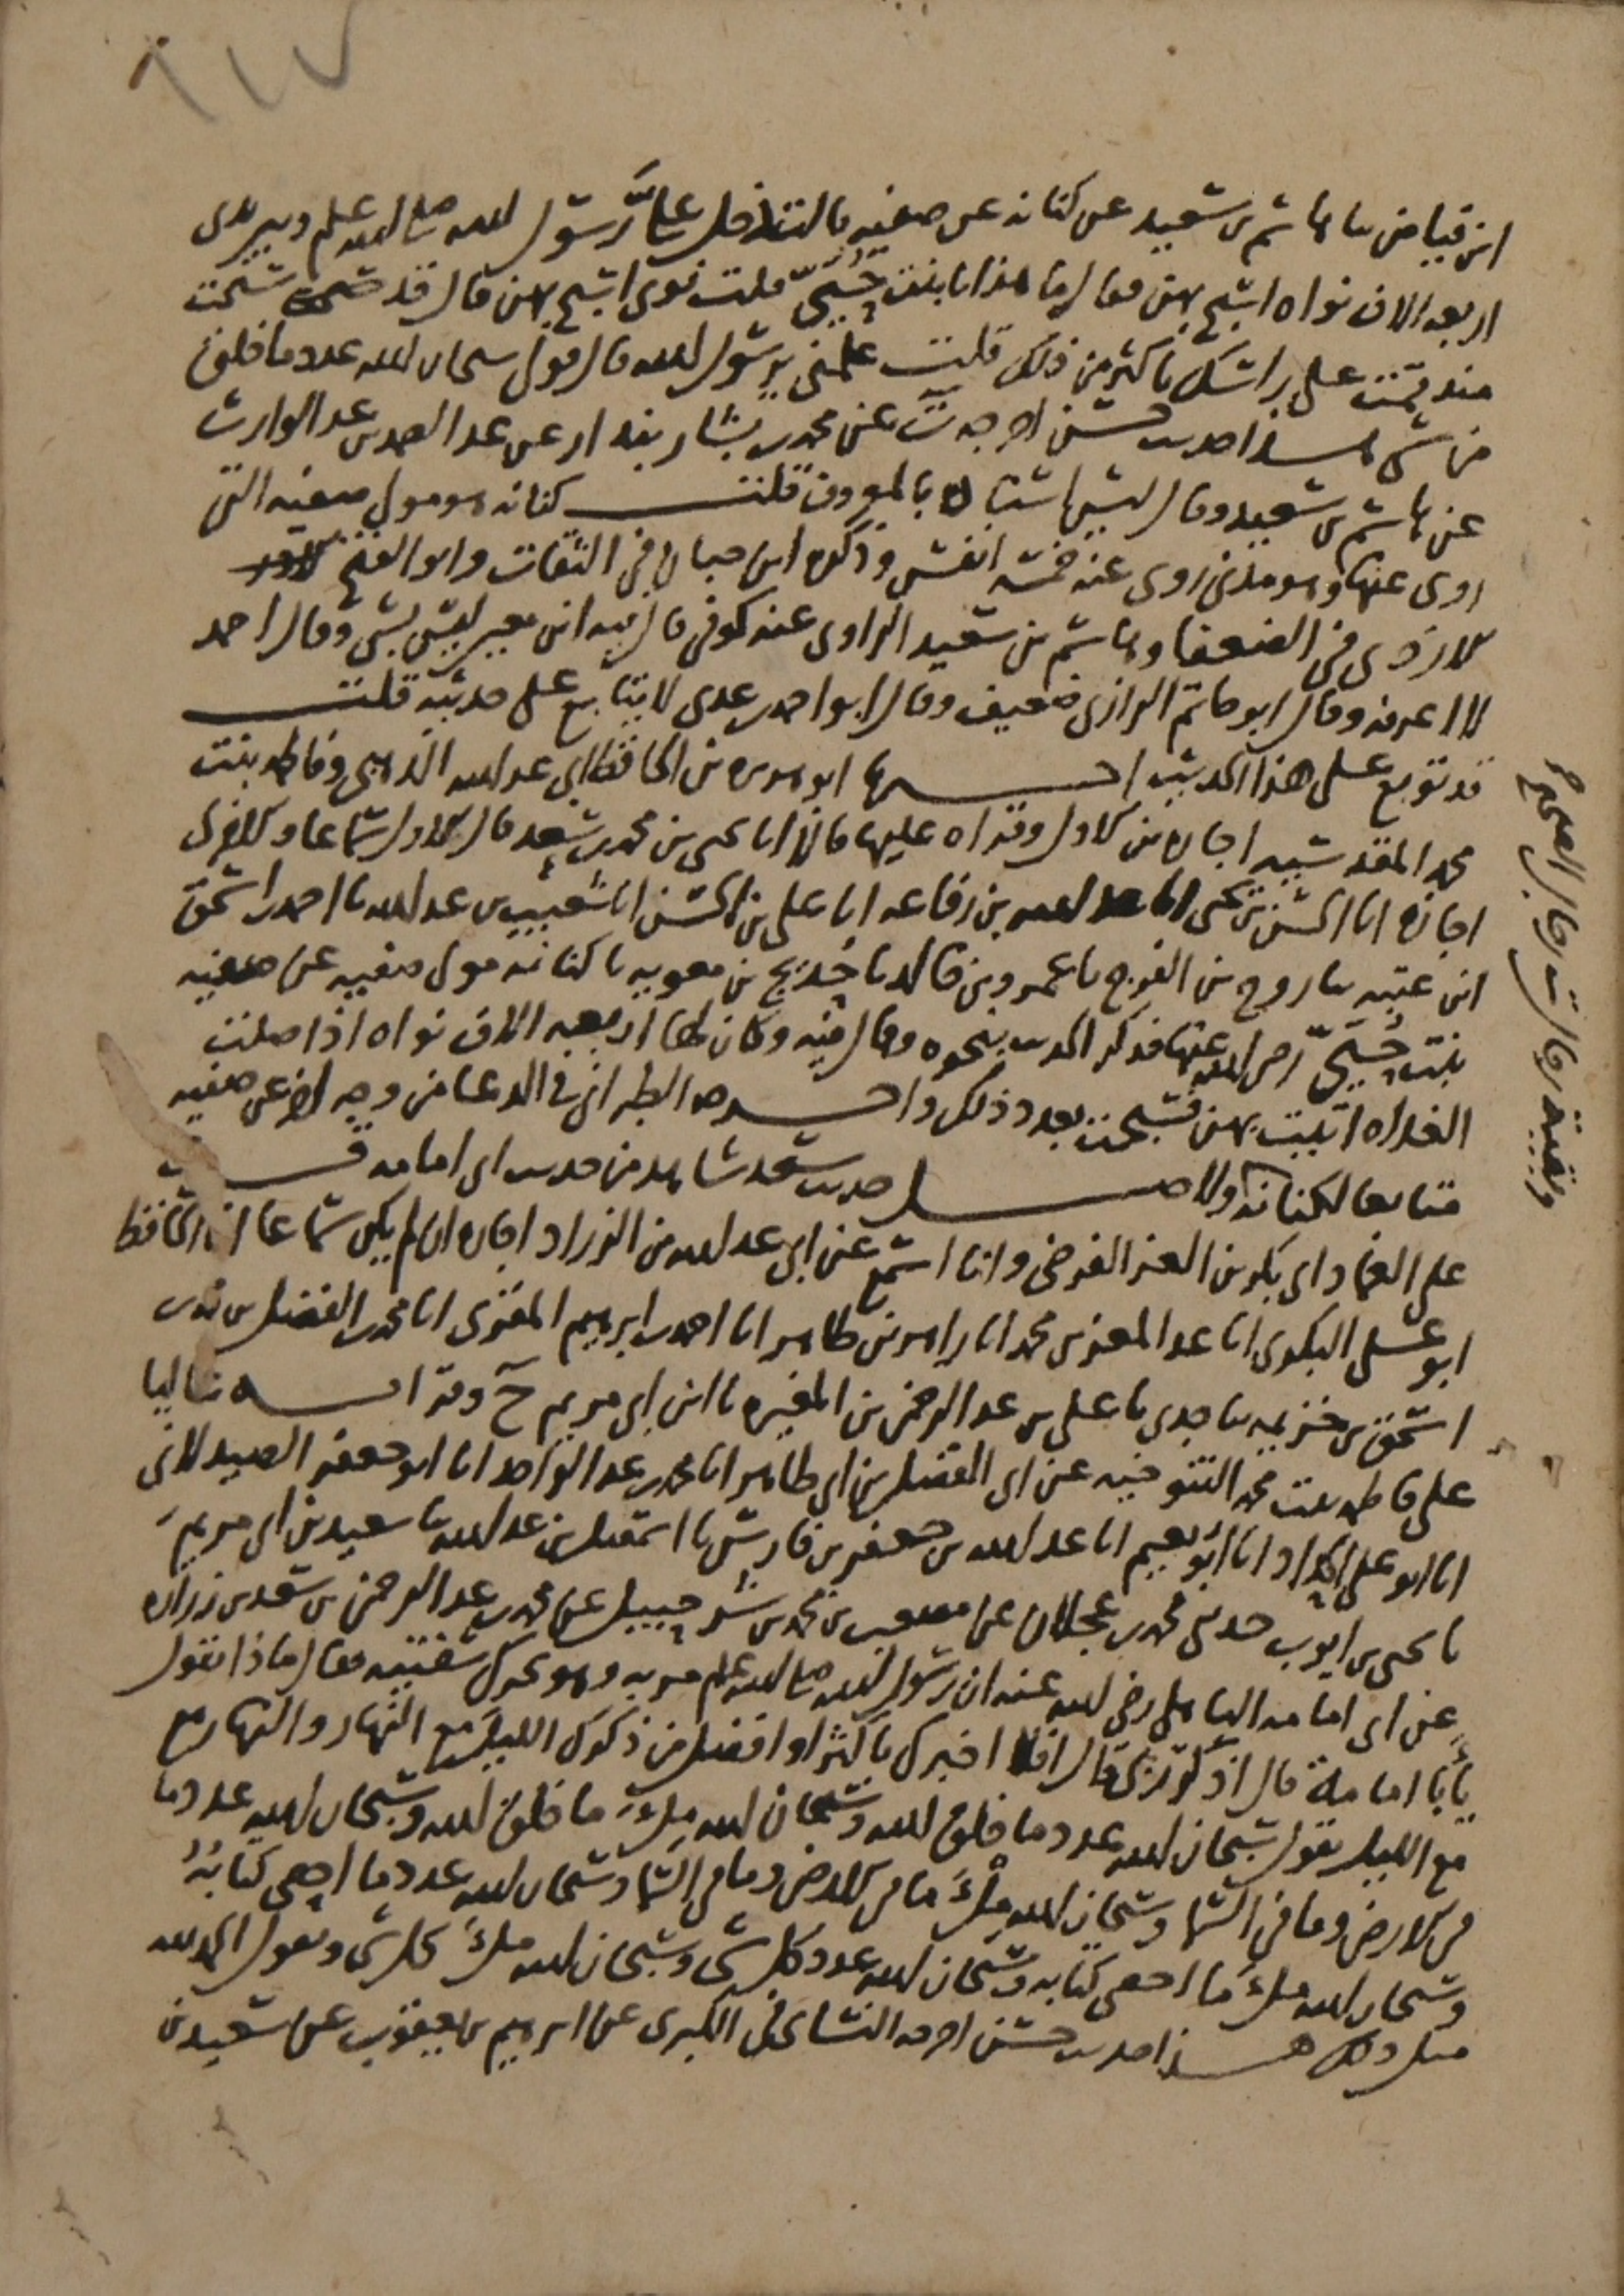 ٦١٧
ابن فياض نا هاشم بن سعيد عن كنانه عن صفيه قالت دخل عليَّ رسول الله صلى الله عليه وسلم وبين يدي
اربعه الاف نواه اسبح بهن فقال ما هذا يا بنت حُييّ قلت نوى اسبح بهن قال قد سبحت
منذ قمت على راسك باكثر من ذلك قلت علمني يرسول الله قال قولي سبحان الله عدد ما خلق
من شي هذا حديث حسن اخرجه ت عن محمد بن بشار بندار عن عبد الصمد بن عبد الوارث
عن هاشم بن سعيد وقال ليس اسناده بالمعروف قلت كنانه هو مولى صفيه التي
روى عنها وهو مدني روى عنه خمسه انفس وذكره ابن حبان في الثقات وابو الفتح
الازدي في الضعفا وهاشم بن سعيد الراوي عنه كوفي قال فيه ابن معين ليس بشي وقال احمد
لا اعرفه وقال ابو حاتم الرازي ضعيف وقال ابو احمد بن عدي لا يتابع على حديثه قلت
قد توبع على هذا الحديث ابو هريره بن الحافظ ابي عبد الله الذهبي وفاطمه بنت
محمد المقدسيه اجازه من الاول وقراه عليها قالا انا يحيى بن محمد بن سعد قال الاول سماعا والاخرى
اجازه انا الحسن بن يحيى انا عبد الله بن رفاعه انا علي بن الحسن انا شعيب بن عبد الله نا احمد بن اسحق
ابن عتبه نا روح بن الفرج نا عمرو بن خالد نا حُديج بن معويه نا كنانه مولى صفيه عن صفيه
بنت حُييّ رضي الله عنها فذكر الحديث بنحوه وقال فيه وكان لها اربعه الاف نواه اذا صلت
الغداه اتيت بهن فسبحت بعدد ذلك واخرجه الطبراني في الدعا من وجه اخر عن صفيه
متابعا لكنانه ولاصل حديث سعد شاهد من حديث ابي امامه قرات
على العماد ابي بكر بن العز الفرضي وانا اسمع عن ابي عبد الله بن الزراد اجازه ان لم يكن سماعا انا الحافظ
ابو علي البكري انا عبد المعز بن محمد انا زاهر بن طاهر انا احمد بن ابرهيم المقري انا محمد بن الفضل بن محمد بن
اسحق بن خزيمه نا جدي نا علي بن عبد الرحمن بن المغيره نا ابن ابي مريم ح وقراته عاليا
على فاطمه بنت محمد التنوخيه عن ابي الفضل بن ابي طاهر انا محمد بن عبد الواحد انا ابو جعفر الصيدلاني
انا ابو علي الحداد انا ابو نعيم انا عبد الله بن جعفر بن فارس نا اسمعيل بن عبد الله نا سعيد بن ابي مريم
نا يحيى بن ايوب حدثني محمد بن عجلان عن مصعب بن محمد بن شرحبيل عن محمد بن عبد الرحمن بن سعد بن زراره
عن ابي امامه الباهلي رضي الله عنه ان رسول الله صلى الله عليه وسلم مر به وهو يحرك شفتيه فقال ماذا تقول
يأبا امامة قال اذكر ربي قال افلا اخبرك باكثر او افضل من ذكرك الليل مع النهار والنهار مع
مع الليل تقول سبحان الله عدد ما خلق الله وسبحان الله ملءَ ما خلق الله وسبحان الله عدد ما
في الارض وما في السما وسبحان الله ملءَ ما في الارض وما في السما وسبحان الله عدد ما احصى كتابهُ
وسبحان الله ملءَ ما احصى كتابه وسبحان الله عدد كل شي وسبحان الله ملءَ كل شي وتقول الحمد لله
مثل ذلك هذا حديث حسن اخرجه النسائي في الكبرى عن ابرهيم بن يعقوب عن سعيد بن